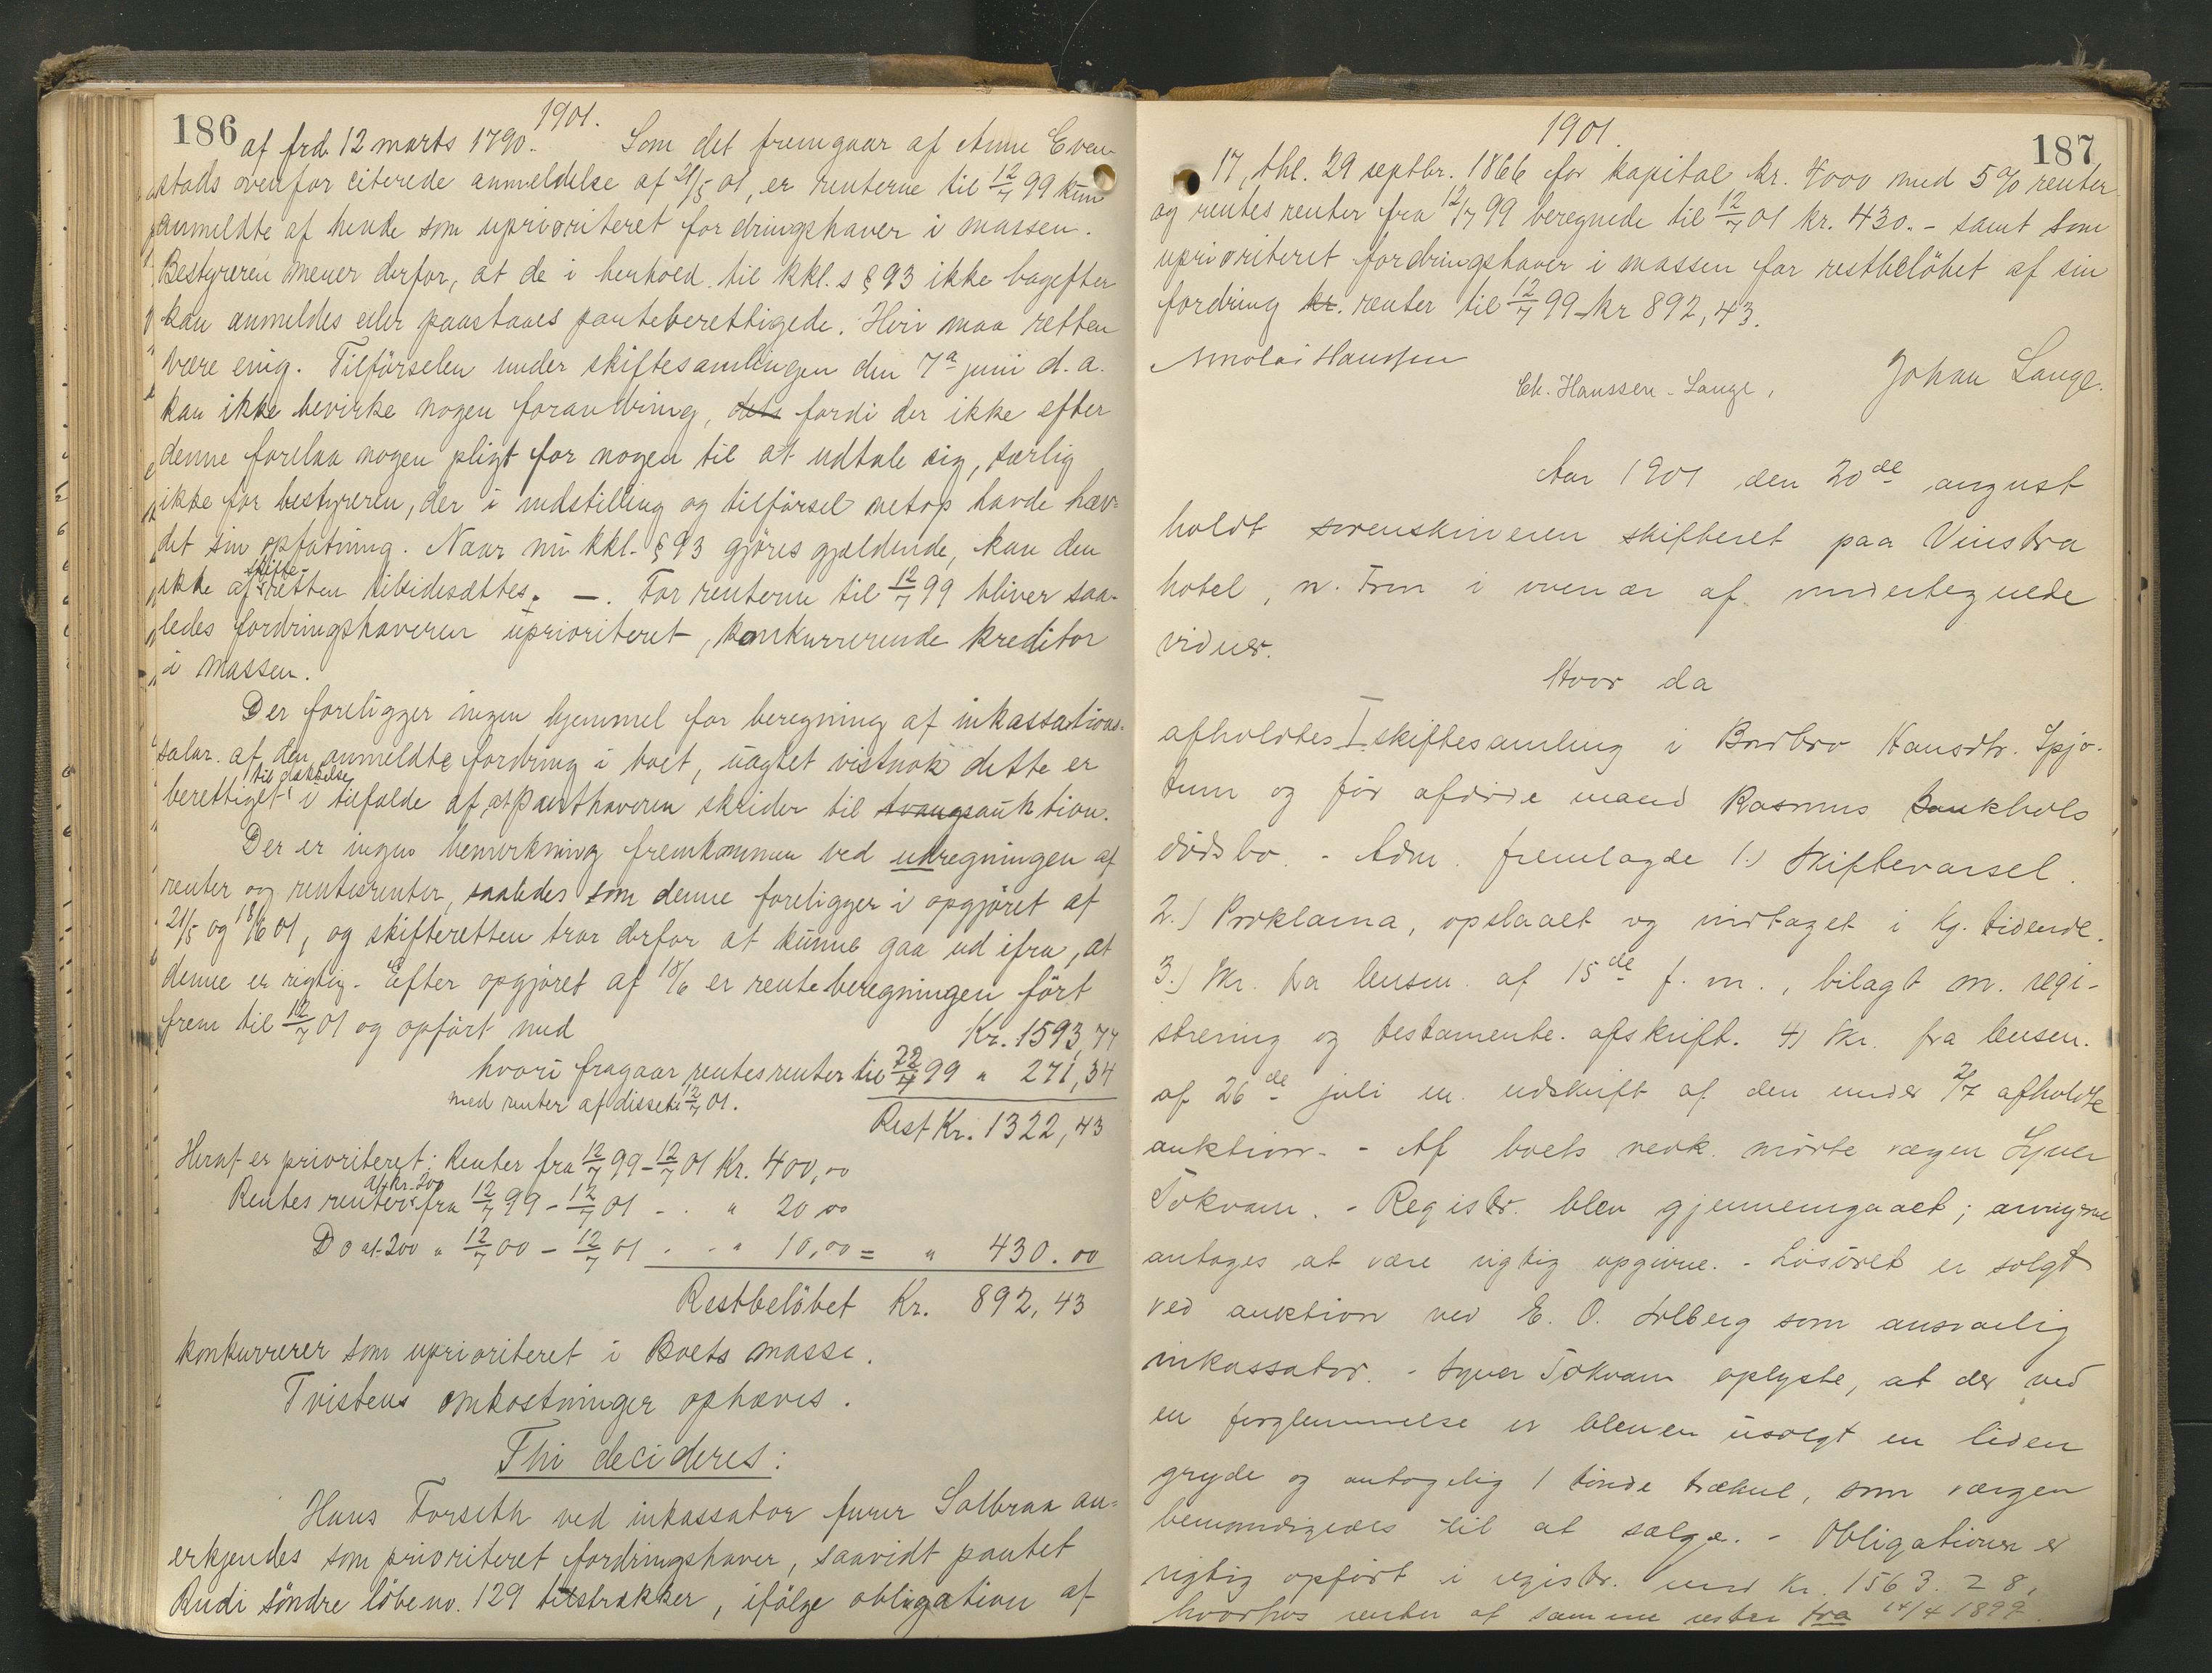 186
1901.
af frd. 12 marts 1790. Som det fremgaar af Anne Even-
stads ovenfor citerede anmeldelse af 21/5 01, er renterne til 12/7 99 kun
anmeldte af hende som uprioriteret fordringshaver i massen.
Bestyreren mener derfor, at de i henhold til kkl.s § 93 ikke bagefter
kan anmeldes eller paastaaes panteberettigede. Heri maa retten
være enig. Tilførselen under skiftesamlingen den 7de juni d.a.
kan ikke bevirke nogen forandring, fordi der ikke efter
denne forelaa nogen pligt for nogen til at udtale sig, særlig
ikke for bestyreren, der i indstilling og tilførsel netop havde hæv-
det sin opfatning. Naar nu kkl. § 93 gjøres gjældende, kan den
skifte-
ikke af retten tilsidesættes. —. For renterne til 12/7 99 bliver saa-
ledes fordringshaveren uprioriteret, konkurrerende kreditor
i massen.
Der foreligger ingen hjemmel for beregning af inkassations-
salær af den anmeldte fordring i boet, uagtet vistnok dette er
til dækkelse
berettiget i tilfælde af, at panthaveren skrider til tvangsauktion.
Der er ingen bemerkning fremkommen ved udregningen af
renter og rentesrenter, saaledes som denne foreligger i opgjøret af
21/5 og 18/6 01, og skifteretten tror derfor at kunne gaa ud ifra, at
denne er rigtig. Efter opgjøret af 18/6 er renteberegningen ført
frem til 12/7 01 og opført med Kr. 1593,77
hvori fragaar rentesrenter til 12/7 99 " 271,34
med renter af disse til 12/7 01.
Rest Kr. 1322,43
Heraf er prioriteret: Renter fra 12/7 99 - 12/7 01 Kr. 400,00
af kr. 200
Rentes renter fra 12/7 99 - 12/7 01 - . " 20,00
Do af 200 " 12/7 00 - 12/7 01 . . " 10,00 = " 430.00
Restbeløbet Kr. 892,43
konkurrerer som uprioriteret i Boets masse.
Tvistens omkostninger ophæves.
Thi decideres:
Hans Forseth ved inkassator furer Solbraa an-
erkjendes som prioriteret fordringshaver, saavidt pantet
Rudi søndre løbeno. 129 tilstrækker, ifølge obligation af
187
1901.
17, thl. 29 septbr. 1866 for kapital kr. 4000 med 5% renter
og rentes renter fra 12/7 99 beregnede til 12/7 01 kr. 430.- samt som
uprioriteret fordringshaver i massen for restbeløbet af sin
fordring kr. renter til 12/7 99 kr 892,43.
Nikolai Hanssen
Ch. Hanssen-Lange.
Johan Lange.
Aar 1901 den 20de august
holdt sorenskriveren skifteret paa Vinstra
hotel, n. Fron i overvær af undertegnede
vidner.
Hvor da
afholdtes I skiftesamling i Brdbro Hansdtr. Spjo-
tum og før afdøde mand Rasmus Haukhols
dødsbo. - Adm. fremlagde 1.) Skiftevarsel.
2.) Proklama, opslaaet og indtaget i Kj. tidende.
3.) Skr. fra lensm. af 15de f. m., bilagt m. regi-
strering og testamente. afskrift. 4) Skr. fra lensm.
af 26de juli m. udskrift af den under 2/7 afholdte
auktion. - Af boets vedk. mødte værgen Syver
Tokvam. - Registr. blev gjennemgaaet; arvingerne
antages at være rigtig opgivne. - Løsøret er solgt
ved auktion ved E. O. Solberg som ansvarlig
inkassator. - Syver Tokvam oplyste, at der ved
en forglemmelse er bleven usolgt en liden
gryde og antagelig 1 tønde trækul, som værgen
bemyndigedes til at sælge. - Obligationen er
rigtig opført i registr. med Kr. 1563.28,
hvorhos renter af samme rester fra 14/4 1899.